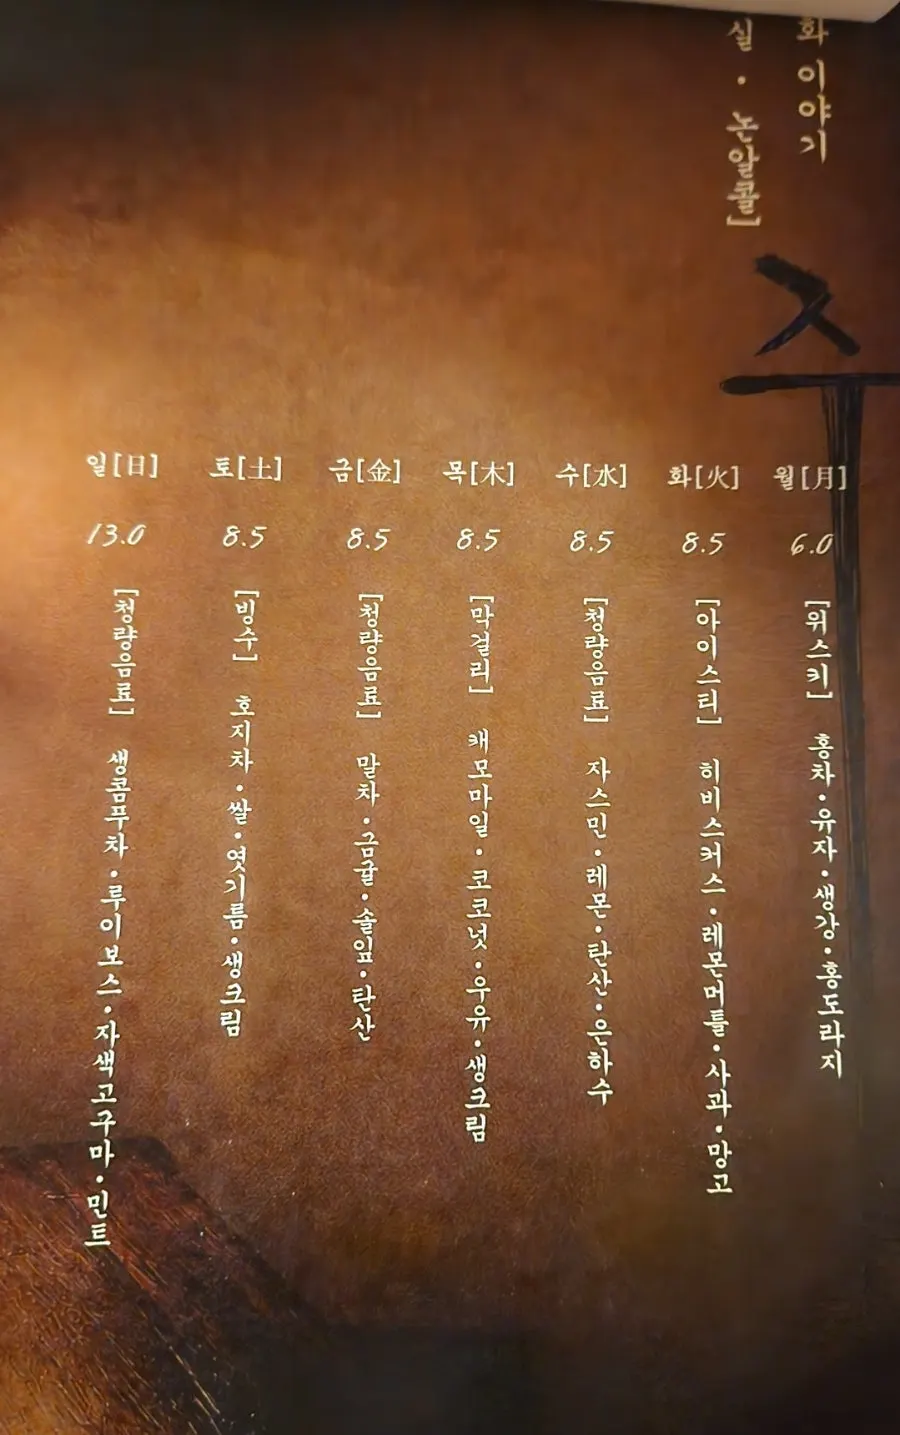 화 이야기
실 · 논알콜]
주
월[月]
6.0
[위스키] 홍차 · 유자 · 생강 · 홍도라지
화[火]
8.5
[아이스티] 히비스커스 · 레몬머틀 · 사과 · 망고
수[水]
8.5
[청량음료] 자스민 · 레몬 · 탄산 · 은하수
목[木]
8.5
[막걸리] 캐모마일 · 코코넛 · 우유 · 생크림
금[金]
8.5
[청량음료] 말차 · 금귤 · 솔잎 · 탄산
토[土]
8.5
[빙수] 호지차 · 쌀 · 엿기름 · 생크림
일[日]
13.0
[청량음료] 생콤푸차 · 루이보스 · 자색고구마 · 민트